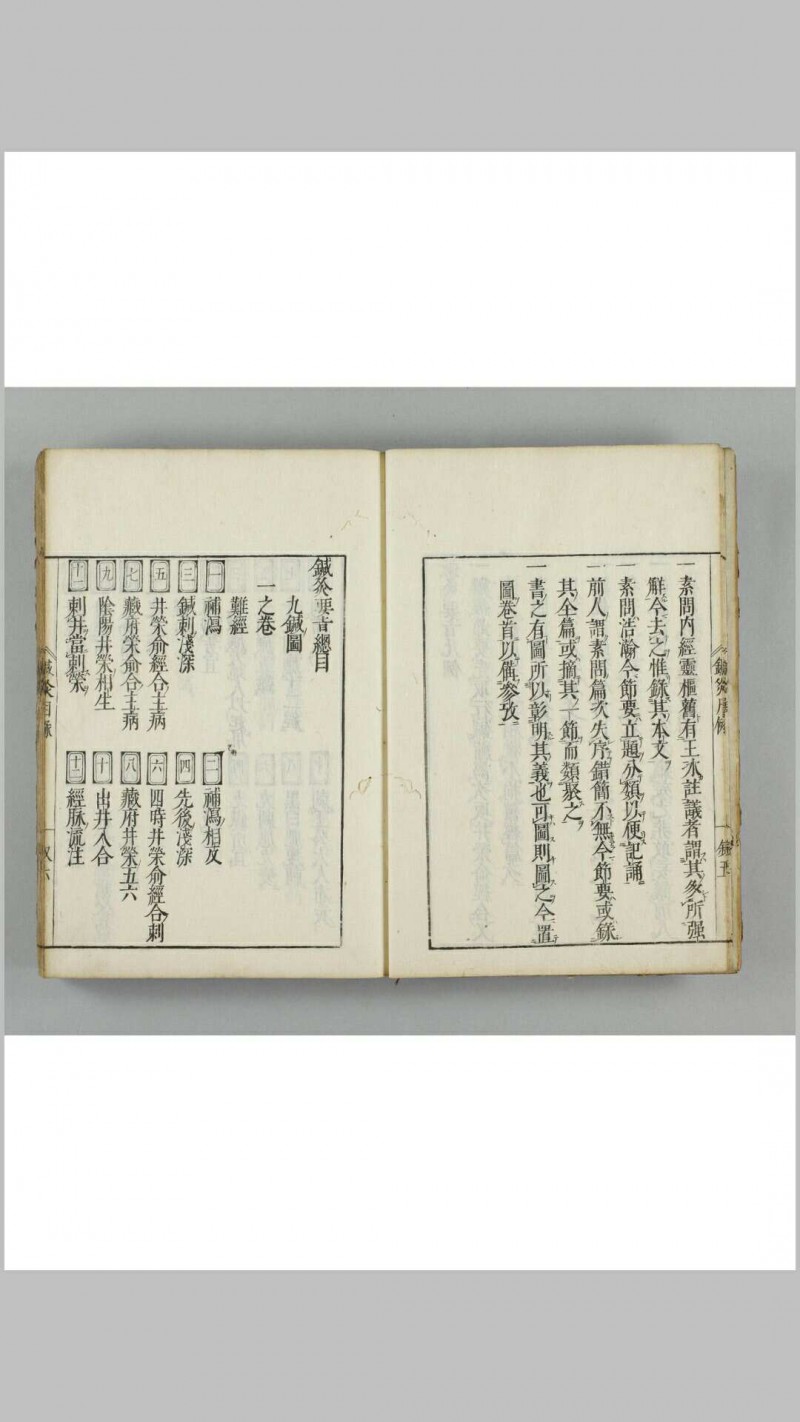 一素問內經靈樞舊有王氷註議者謂其多所强
解今去之惟錄其本文
一素問浩瀚今節要立題分類以便記誦
一前人謂素問篇次失序錯簡不無今節要或錄
其全篇或摘其一節而類聚之
一書之有圖所以彰明其義也可圖則圖之今置
圖卷首以備參攷
鍼灸要旨總目
九鍼圖
一之卷
難經
一 補瀉
二 補瀉相反
三 鍼刺淺深
四 先後淺深
五 井榮俞經合主病
六 四時井榮俞經合刺
七 藏府榮俞合主病
八 藏府井榮五六
九 陰陽井榮相生
十 出井入合
十一 刺井當刺榮
十二 經脉流注
鍼灸目錄